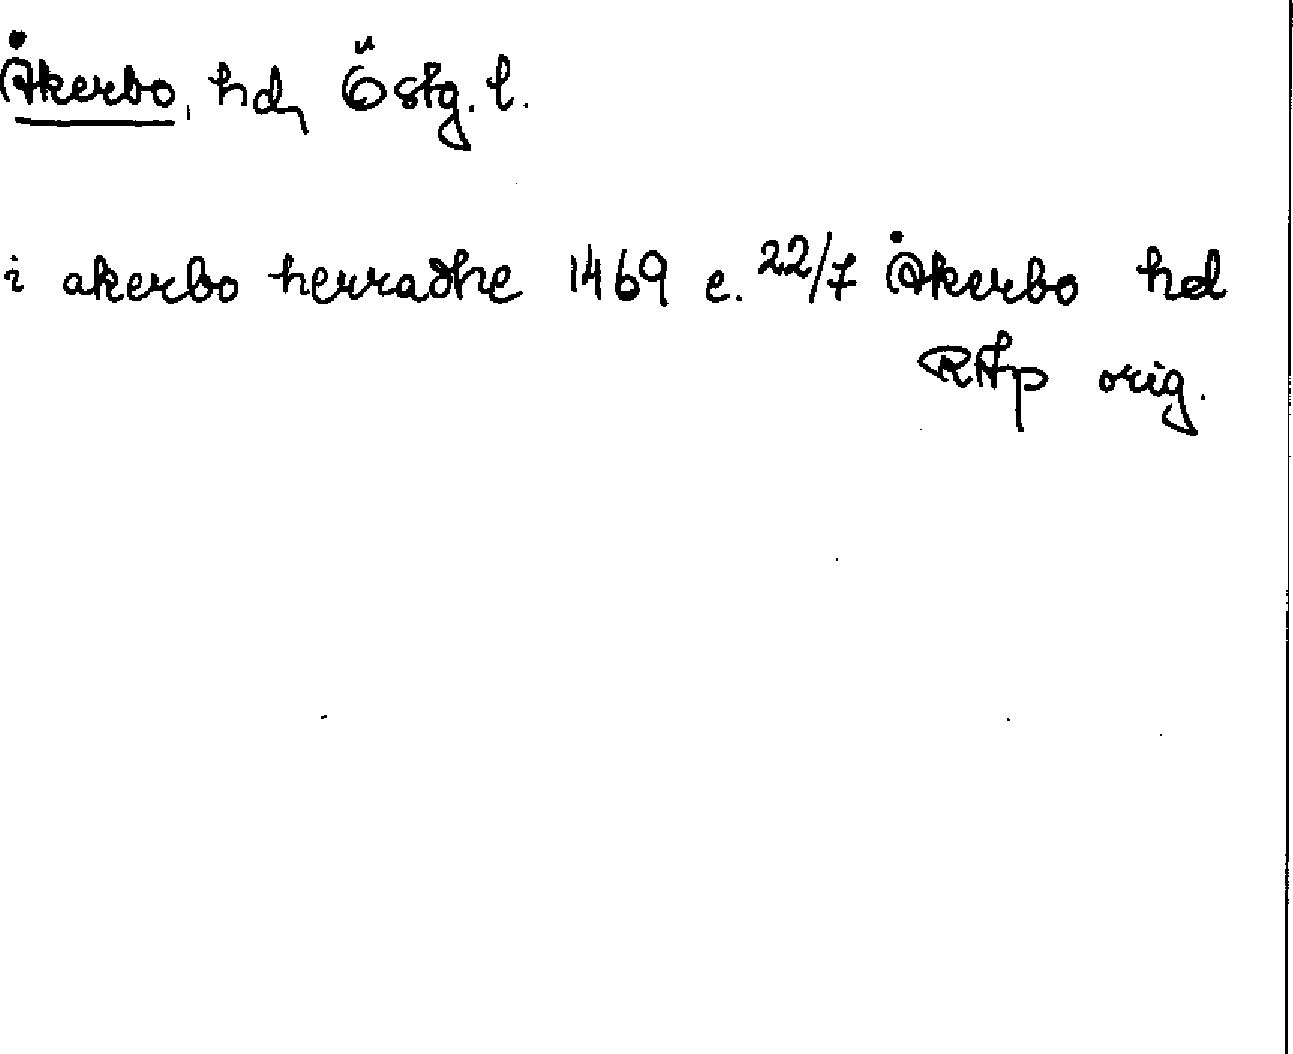 Åkerbo, hd, Östg. l.
i akerbo herradhe 1469 e. 22/7 Åkerbo hd
RAp orig.